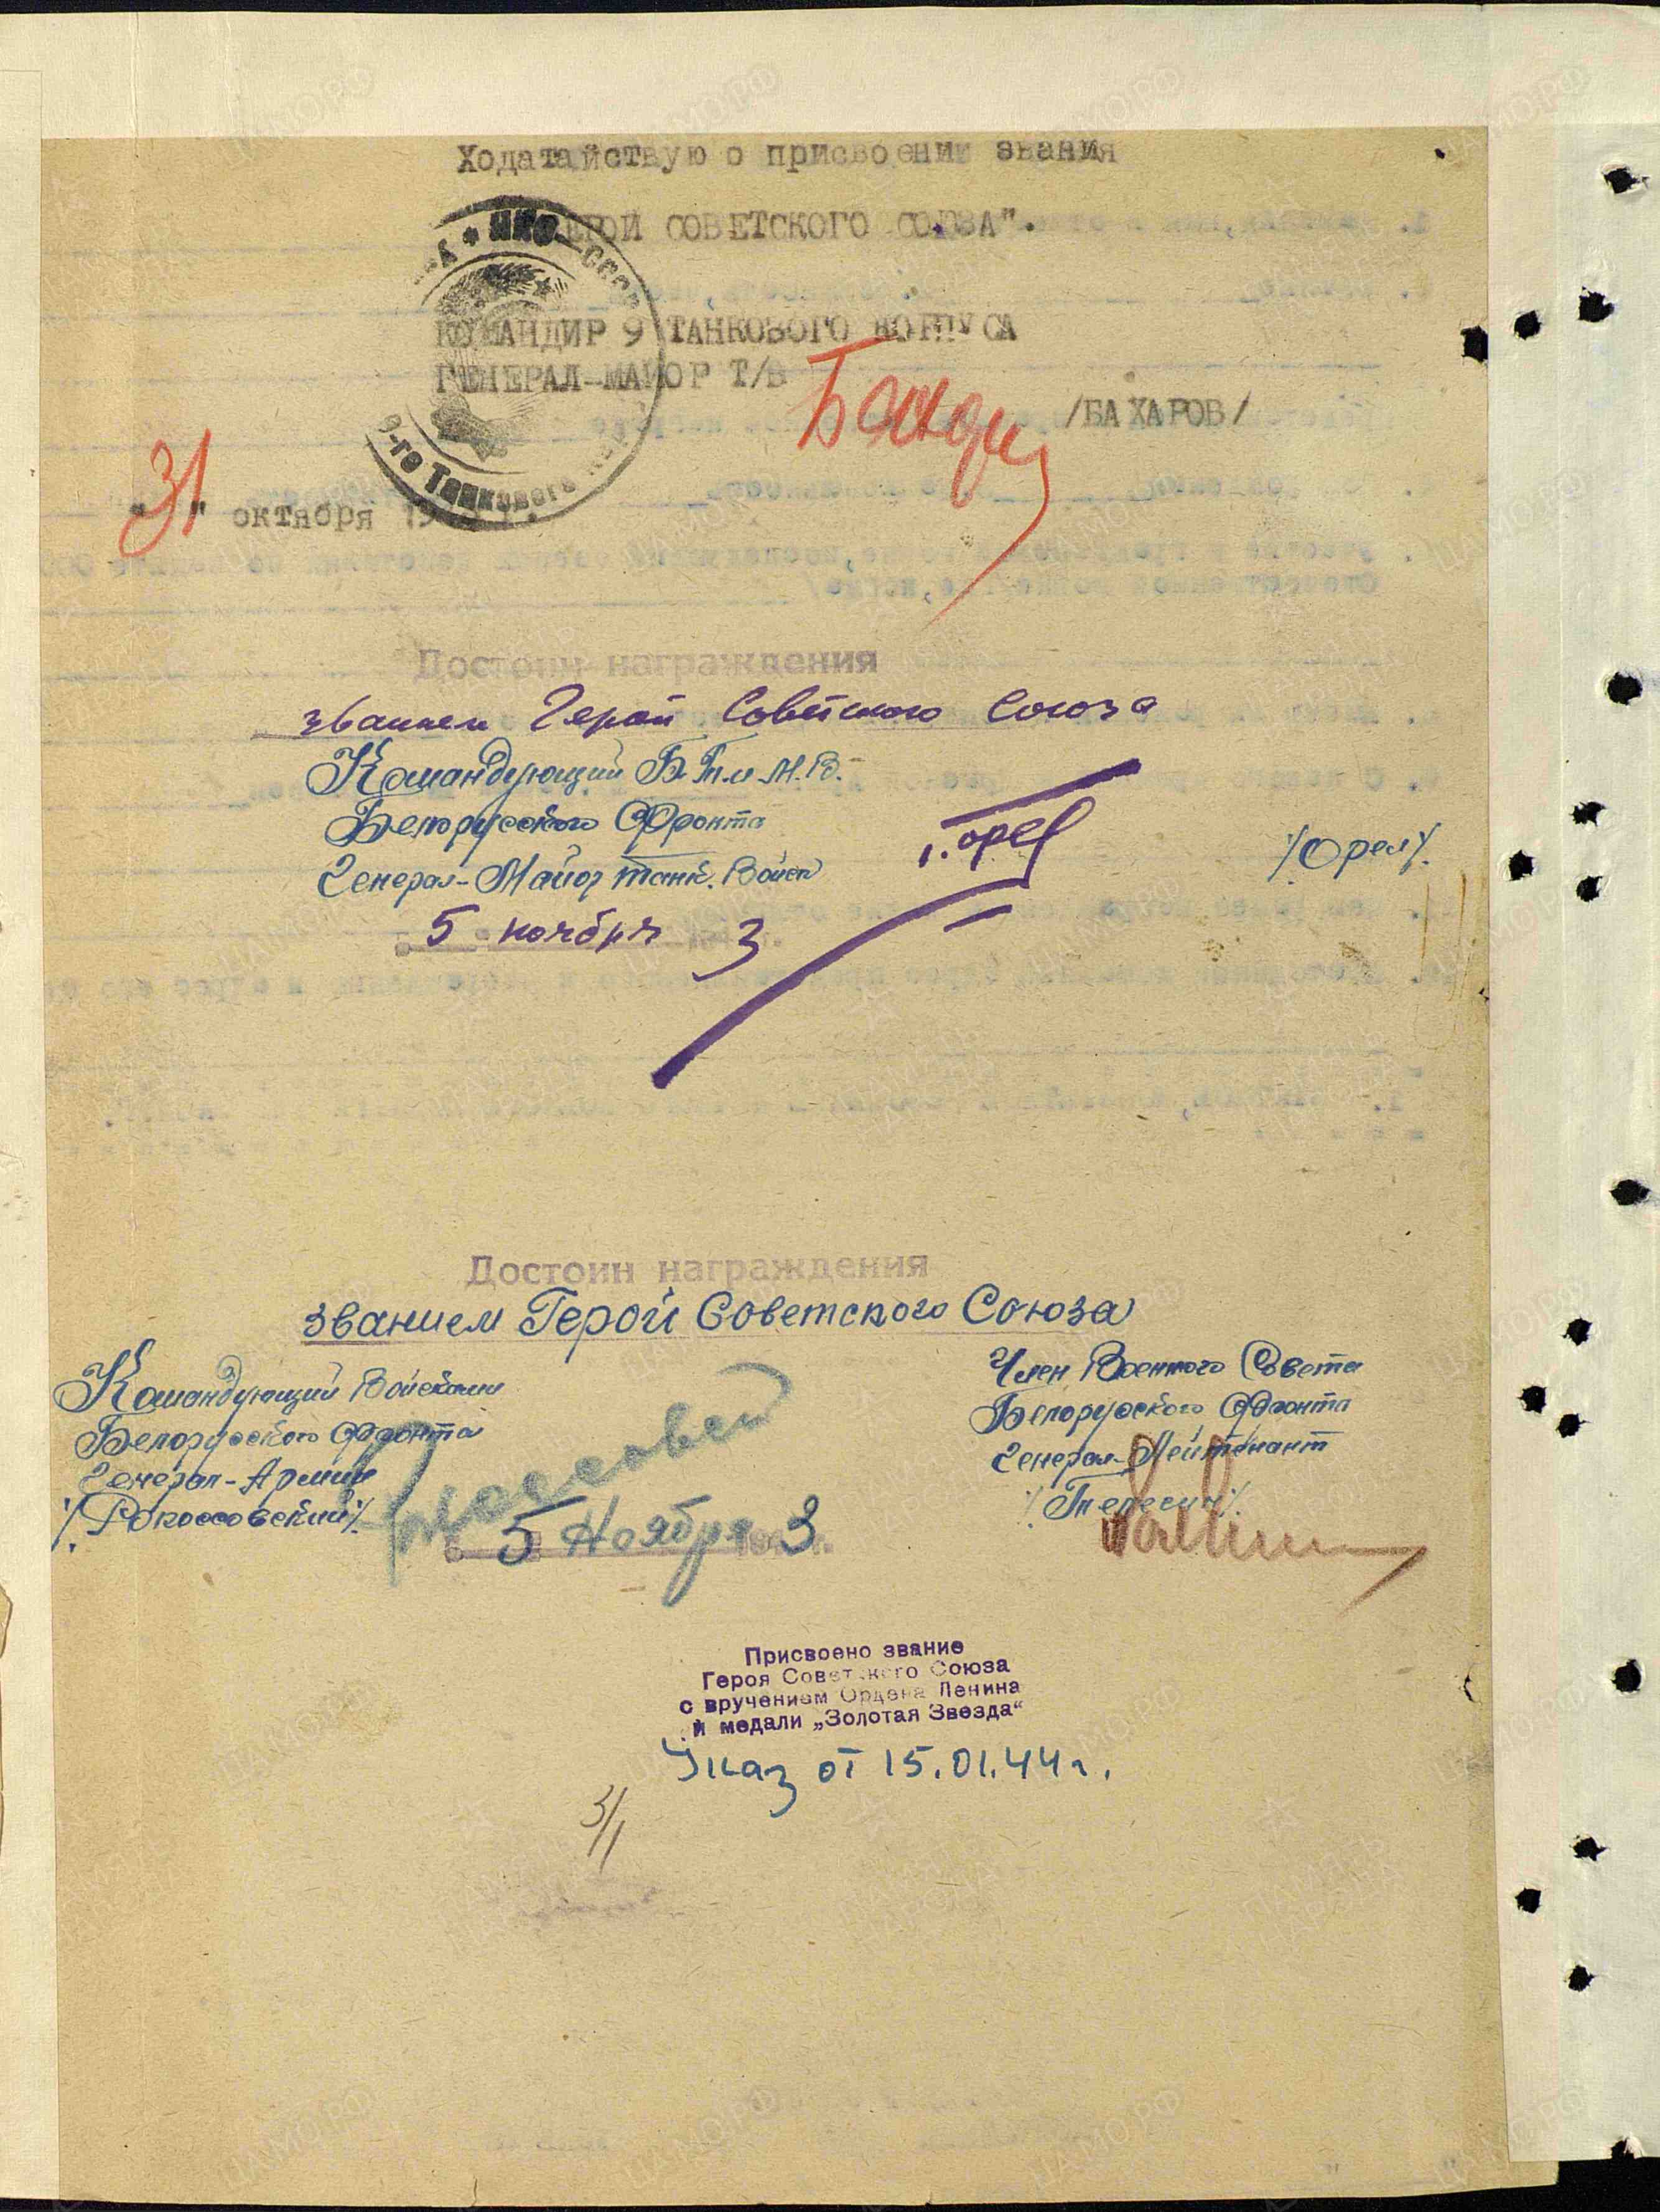 Ходатайствую о присвоении звания
ЕРОЙ СОВЕТСКОГО СОЮЗА".
НКО СССР
9-го Танкового
КОМАНДИР 9 ТАНКОВОГО КОРПУСА
ГЕНЕРАЛ-МАЙОР Т/В
/БАХАРОВ/
"31" октября 19
Достоин награждения
званием Герой Советского Союза
Командующий БТ и М.В.
Белорусского Фронта
Генерал-Майор танк. Войск
г. Орел
/Орел/.
5 ноября 3
Достоин награждения
званием Герой Советского Союза
Командующий Войсками
Белорусского Фронта
Генерал-Армии
/Рокоссовский/.
Член Военного Совета
Белорусского Фронта
Генерал-Лейтенант
/Телегин/.
5 Ноября 3
Присвоено звание
Героя Советского Союза
с вручением Ордена Ленина
и медали „Золотая Звезда“
Указ от 15.01.44 г.
3/1